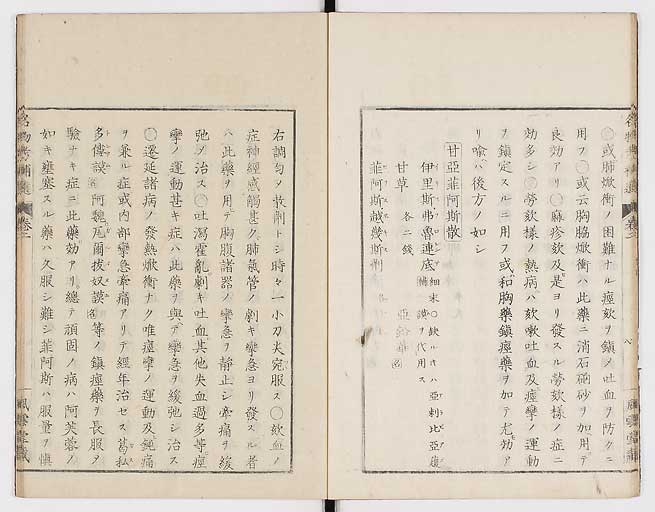 ◯或肺焮衝ノ困難ナル痙咳ヲ鎮ノ吐血ヲ防クニ
用フ◯或云胸脇焮衝ハ此藥ニ消石硇砂ヲ加用テ
良効アリ◯麻疹欬及是ヨリ發スル勞欬樣ノ症ニ
効多シ◯勞欬樣ノ熱病ハ欬嗽吐血及痙攣ノ運動
ヲ鎮定スルニ用フ或和胸藥鎮痙藥ヲ加テ尤効ア
リ喩ハ後方ノ如シ
甘亞菲阿斯散
伊里斯弗魯連底 細末◯缺ルキハ亞刺比亞護謨ヲ代用ス
甘草 各二錢
菲阿斯越幾斯
右調勻ヲ散劑トシ時々一小刀尖宛服ス◯欬血ノ
症神經感觸甚ク肺氣管ノ劇キ攣急ヨリ發スル者
ハ此藥ヲ用テ胸腹諸器ノ攣急ヲ靜止シ牽痛ヲ緩
弛ヲ治ス◯吐瀉霍亂劇キ吐血其他失血過多等痙
攣ノ運動甚キ症ハ此藥ヲ與テ攣急ヲ緩弛シ治ス
◯遷延諸病ノ發熱焮衝ナク唯痙攣ノ運動及鈍痛
ヲ兼ル症或内部攣急牽痛アリテ經年治セス葛私
多僂謨 阿魏瓦爾拔奴謨 等ノ鎮痙藥ヲ長服ヲ
驗ナキ症ニ此藥効アリ總テ頑固ノ病ハ阿芙蓉ノ
如キ壅塞スル藥ハ久服シ難シ菲阿斯ハ服量ヲ慎